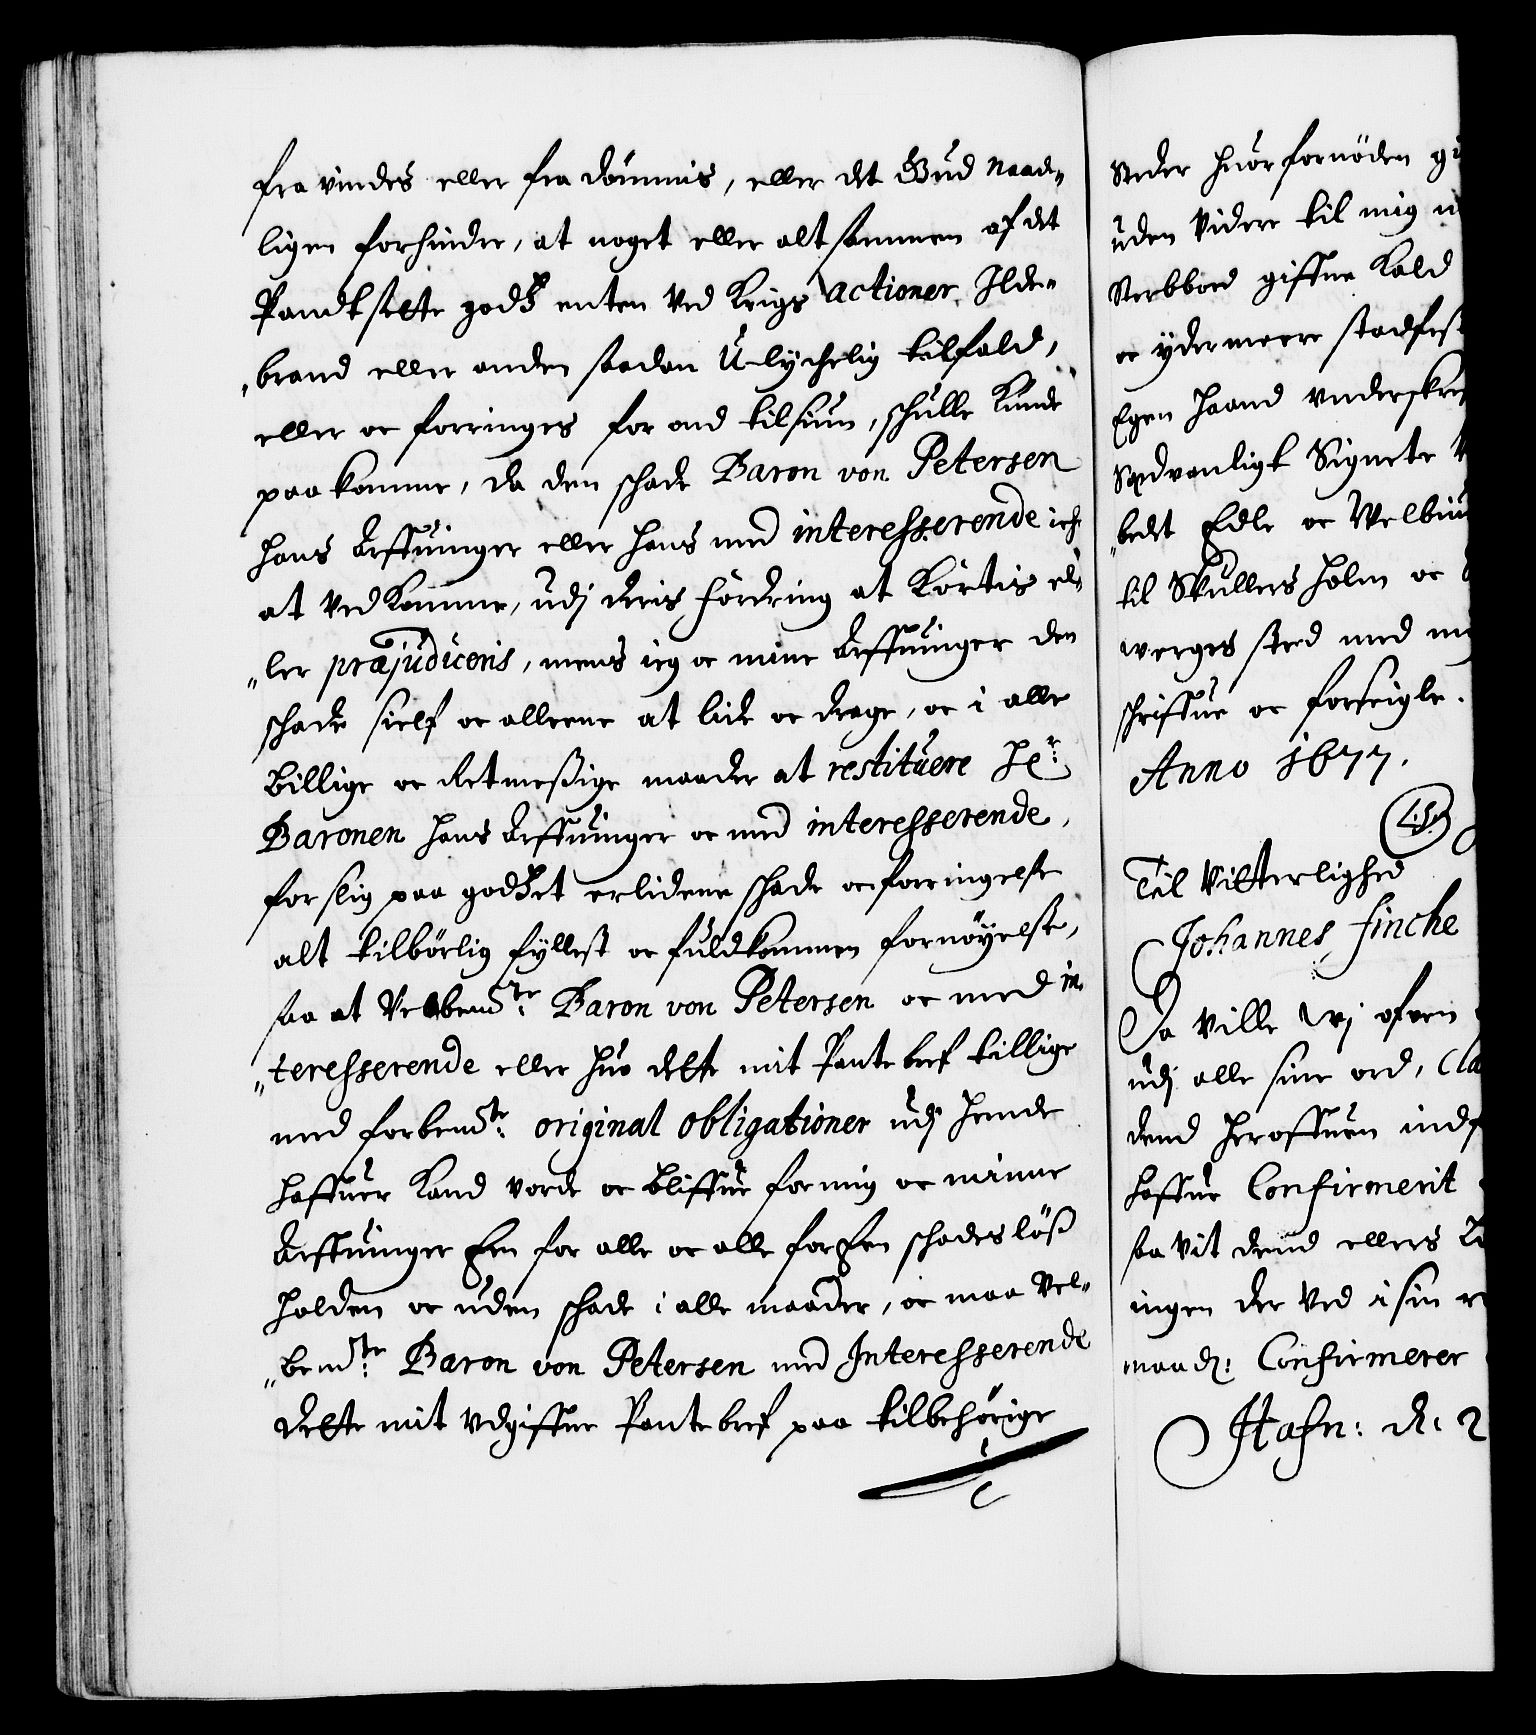 fra vindes eller fra dömmis, eller det Gud naade„
ligen forhindre, at noget eller alt sammen af det
Pandtsette godtz enten ved krigs actioner, Ilde„
„brand eller anden saadan U-lychelig tilfald,
eller oc forringes for ond tilsiun, schulle kunde
paa komme, da den schade Baron von Petersen
hans Arffuinger eller hans med interesserende ich
at vedkomme, udj deris fordring at kortis el„
„ler præjudiceris, mens ieg oc mine Arffuinger den
schade sielf oc alleene at lide oc drage, oc i alle
billige oc Retmeßige maader at restituere Hr:
Baronen hans Arffuinger oc med interesserende,
for slig paa godtzet erlidene schade oc forringelse
alt tilbörlig fyllest oc fuldkommen fornöyelse,
saa at Velbemte: Baron von Petersen oc med in„
„teresserende eller huo dette mit Pantebref tillige
med forbemte: original obligationer udj hende
haffuer kand vorde oc bliffue for mig oc minne
Arffuinger Een for alle oc alle for Een schadesløß
holden oc uden schade i alle maader, oc maa Vel„
„bemte: Baron von Petersen med Interesserende
dette mit udgiffne Pantebref paa tilbehörige
steder huor fornöden
uden videre til mig
Sterbboed giffne kald
oc ydermeere stadfest
Egen haand underskref
Sædvanligt Signete
„bedt Edle oc Welbiu
til Skullersholm oc
werges sted med
schriffue oc forseigle.
Anno 1677.
L.S.
Til Vitterlighed
Johannes Finche
Da Ville Wj ofven
udj alle sine ord, Cla
dend heroffuen indf
haffue Confirmerit
saa vit dend ellers
ingen der ved i sin
maade: Confirmerer
Hafn: d: 2